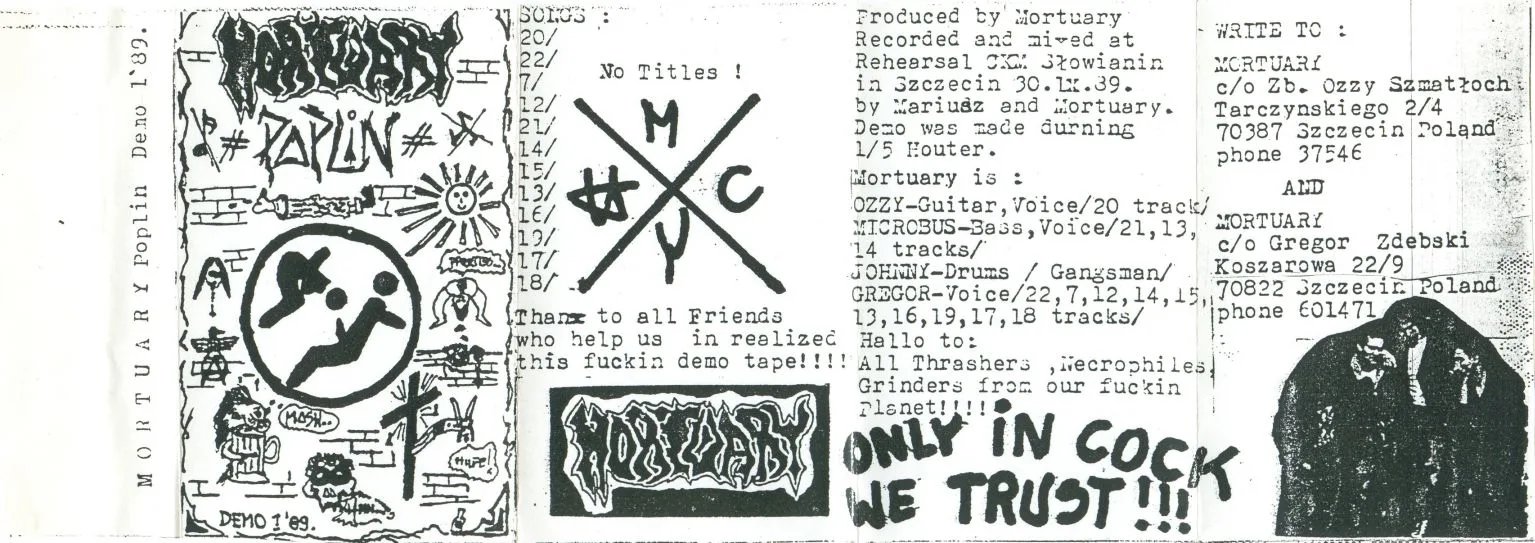 MORTUARY Poplin Demo 1'89.
MORTUARY
# POPLIN #
MOSH...
DEMO 1'89.
SONGS :
20/
22/
7/
12/
21/
14/
15/
13/
16/
19/
17/
18/
No Titles !
M
C
Y
Thanx to all Friends
who help us in realized
this fuckin demo tape!!!!
MORTUARY
Produced by Mortuary
Recorded and mixed at
Rehearsal CKM Słowianin
in Szczecin 30.IX.89.
by Mariusz and Mortuary.
Demo was made durning
1/5 Houter.
Mortuary is :
OZZY-Guitar,Voice/20 track/
MICROBUS-Bass,Voice/21,13,
14 tracks/
JOHNNY-Drums / Gangsman/
GREGOR-Voice/22,7,12,14,15,
13,16,19,17,18 tracks/
Hallo to:
All Thrashers ,Necrophiles,
Grinders from our fuckin
Planet!!!!
ONLY IN COCK
WE TRUST!!!
WRITE TO :
MORTUARY
c/o Zb. Ozzy Szmatłoch
Tarczynskiego 2/4
70387 Szczecin Poland
phone 37546
AND
MORTUARY
c/o Gregor Zdebski
Koszarowa 22/9
70822 Szczecin Poland
phone 601471